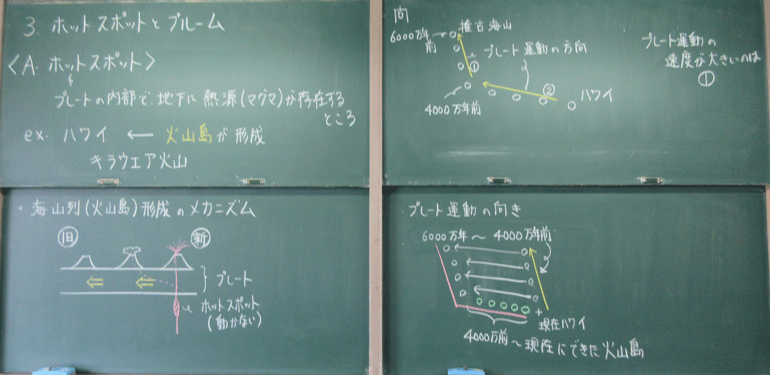 3. ホットスポットとプルーム
〈A. ホットスポット〉
プレートの内部で、地下に熱源(マグマ)が存在する
ところ
ex. ハワイ ← 火山島が形成
キラウエア火山
・海山列(火山島)形成のメカニズム
旧
新
プレート
ホットスポット
(動かない)
向
推古海山
6000万年
前
① プレート運動の方向
4000万年前
②
ハワイ
プレート運動の
速度が大きいのは
①
プレート運動の向き
6000万年〜4000万年前
現在ハワイ
4000万前〜現在にできた火山島